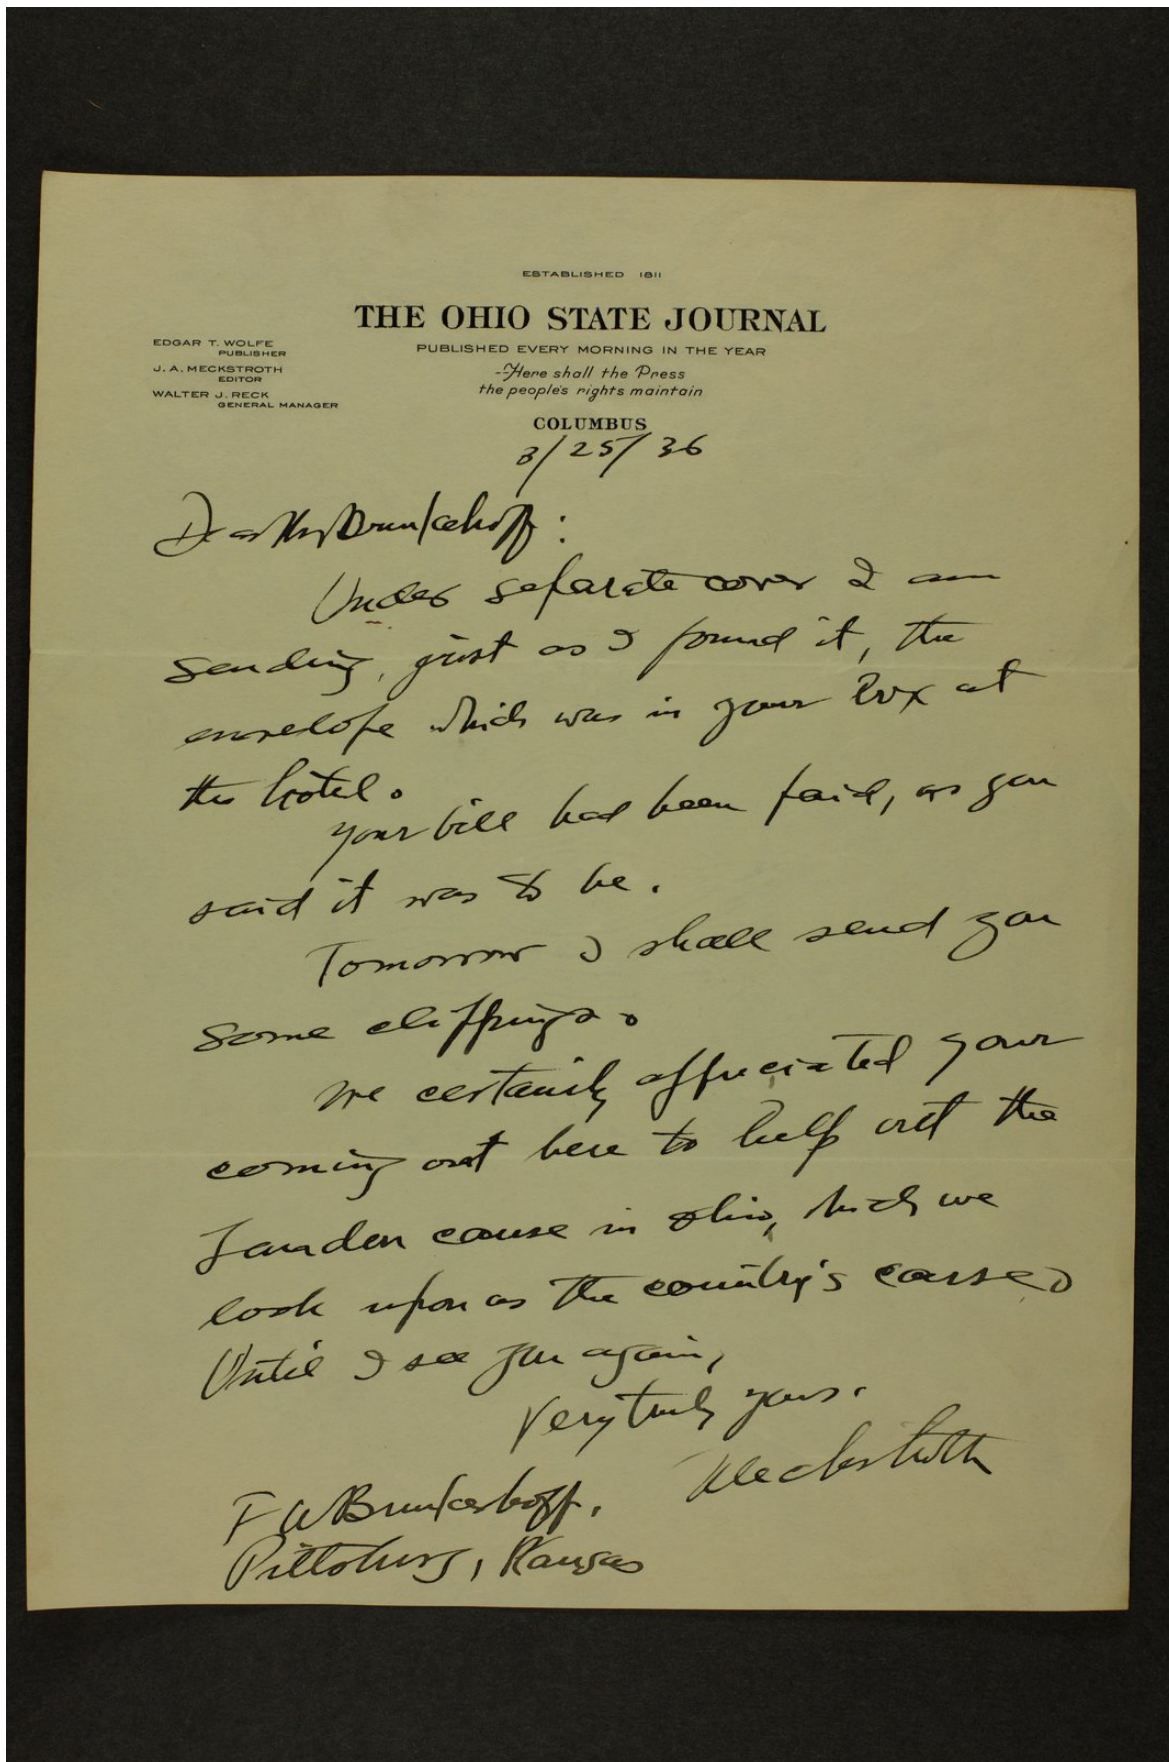 ESTABLISHED 1811
THE OHIO STATE JOURNAL
PUBLISHED EVERY MORNING IN THE YEAR
--Here shall the Press
the people's rights maintain
COLUMBUS
EDGAR T. WOLFE
PUBLISHER
J. A. MECKSTROTH
EDITOR
WALTER J. RECK
GENERAL MANAGER
3/25/36
Dear Mr Brinkerhoff:
Under separate cover I am
sending, just as I found it, the
envelope which was in your box at
the hotel.
Your bill had been paid, as you
said it was to be.
Tomorrow I shall send you
some clippings.
We certainly appreciated your
coming out here to help out the
Landon cause in Ohio, which we
look upon as the country's cause.
Until I see you again,
Very truly yours.
Meckstroth
F W Brinkerhoff,
Pittsburg, Kansas